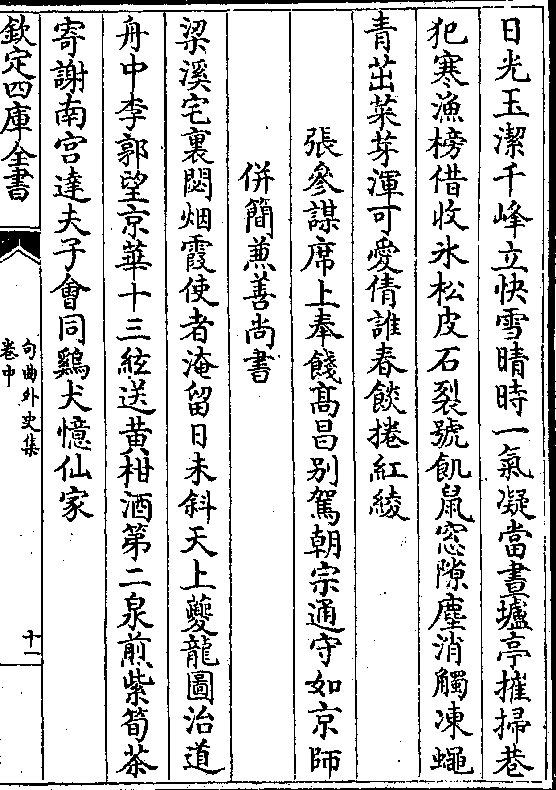 日光玉潔千峰立快雪晴時一氣凝當晝壚亭摧掃巷
犯寒漁榜借收氷松皮石裂號飢鼠窓隙塵消觸凍蠅
青茁菜芽渾可愛倩誰春餤捲紅綾
張參謀席上奉餞髙昌别駕朝宗通守如京師
併簡兼善尚書
梁溪宅裏閟烟霞使者淹留日未斜天上夔龍圖治道
舟中李郭望京華十三絃送黄柑酒第二泉煎紫筍茶
寄謝南宫達夫子會同鷄犬憶仙家
欽定四庫全書
句曲外史集
卷中
十一